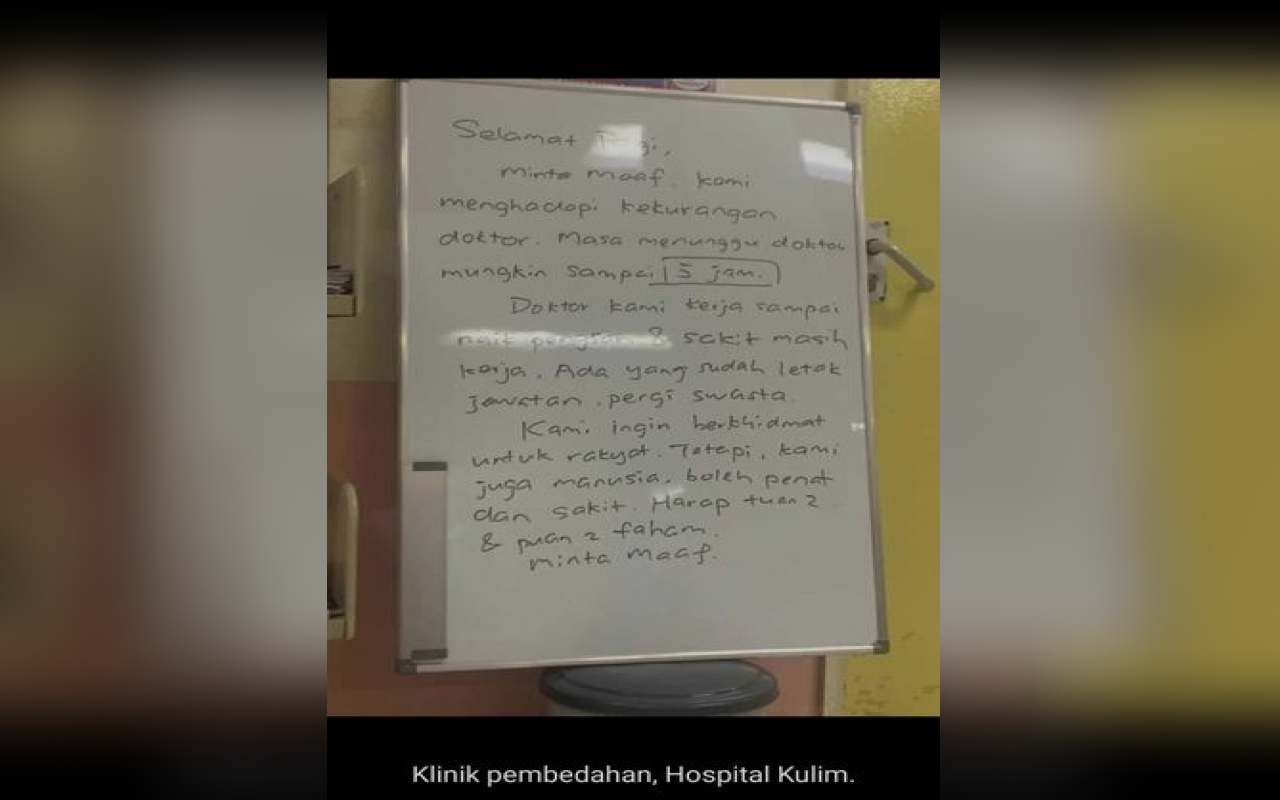 Selamat Pagi,
minta maaf. Kami
menghadapi kekurangan
doktor. Masa menunggu doktor
mungkin sampai 5 jam.
Doktor kami kerja sampai
& sakit masih
kerja. Ada yang sudah letak
jawatan. pergi swasta.
Kami ingin berkhidmat
untuk rakyat. Tetapi, kami
juga manusia. boleh penat
dan sakit. Harap tuan2
& puan2 faham.
minta maaf.
Klinik pembedahan, Hospital Kulim.